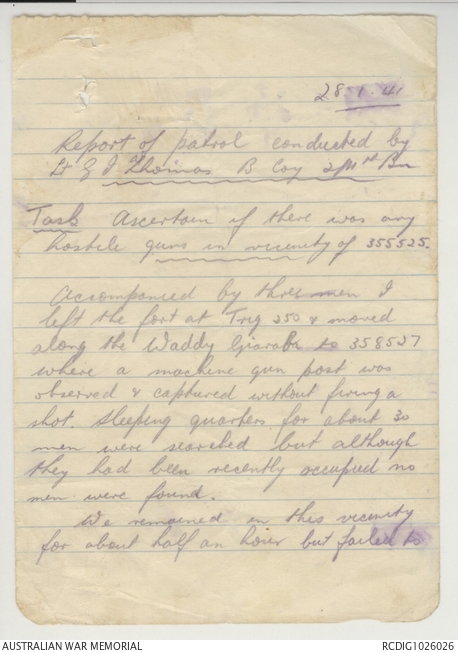 28-1-41
Report of patrol conducted by
Lt G J Thomas B Coy 2/11th Bn
Task Ascertain if there was any
hostile guns in vicinity of 355525.
Accompanied by three men I
left the fort at Trig 250 & moved
along the Waddy Giaraba to 358527
where a machine gun post was
observed & captured without firing a
shot. Sleeping quarters for about 30
men were searched but although
they had been recently occupied no
men were found.
We remained in this vicinity
for about half an hour but failed to
AUSTRALIAN WAR MEMORIAL
RCDIG1026026